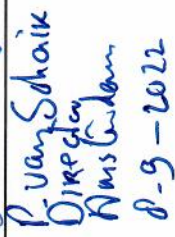 P. van Schaik
Director
Amsterdam
8-9-2022